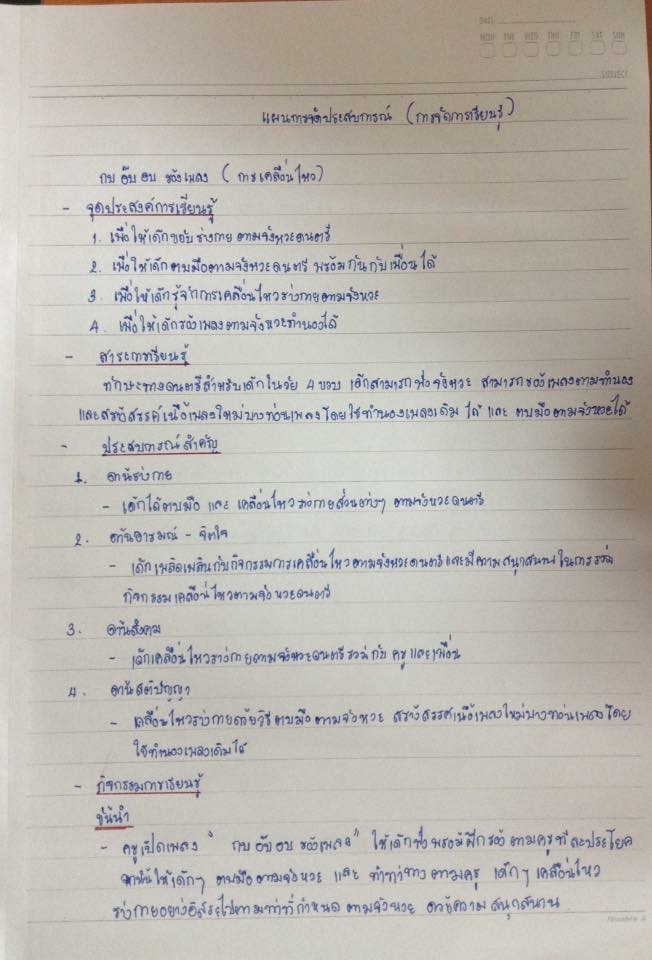 DATE
MON TUE WED THU FRI SAT SUN
SUBJECT
แผนการจัดประสบการณ์ (การจัดการเรียนรู้)
กบ อ๊บ อบ ร้องเพลง (การเคลื่อนไหว)
- จุดประสงค์การเรียนรู้
1. เพื่อให้เด็กขยับร่างกายตามจังหวะดนตรี
2. เพื่อให้เด็กตบมือตามจังหวะดนตรี พร้อมกันกับเพื่อนได้
3. เพื่อให้เด็กรู้จักการเคลื่อนไหวร่างกายตามจังหวะ
4. เพื่อให้เด็กร้องเพลงตามจังหวะทำนองได้
- สาระการเรียนรู้
ทักษะทางดนตรีสำหรับเด็กในวัย 4 ขวบ เด็กสามารถฟังจังหวะ สามารถร้องเพลงตามทำนอง
และสร้างสรรค์เนื้อเพลงใหม่บางท่อนเพลงโดยใช้ทำนองเพลงเดิมได้ และ ตบมือตามจังหวะได้
- ประสบการณ์สำคัญ
1. ด้านร่างกาย
- เด็กได้ตบมือ และ เคลื่อนไหวร่างกายส่วนต่างๆ ตามจังหวะดนตรี
2. ด้านอารมณ์ - จิตใจ
- เด็กเพลิดเพลินกับกิจกรรมการเคลื่อนไหวตามจังหวะดนตรีและมีความสนุกสนานในการร่วม
กิจกรรมเคลื่อนไหวตามจังหวะดนตรี
3. ด้านสังคม
- เด็กเคลื่อนไหวร่างกายตามจังหวะดนตรีร่วมกับ ครูและเพื่อน
4. ด้านสติปัญญา
- เคลื่อนไหวร่างกายด้วยวิธีตบมือตามจังหวะ สร้างสรรค์เนื้อเพลงใหม่บางท่อนเพลงโดย
ใช้ทำนองเพลงเดิมได้
- กิจกรรมการเรียนรู้
ขั้นนำ
- ครูเปิดเพลง " กบ อ๊บ อบ ร้องเพลง" ให้เด็กฟังพร้อมฝึกร้องตามครูทีละประโยค
จากนั้นให้เด็กๆ ตบมือตามจังหวะ และ ทำท่าทางตามครู เด็กๆ เคลื่อนไหว
ร่างกายอย่างอิสระไปตามท่าที่กำหนด ตามจังหวะ ด้วยความสนุกสนาน